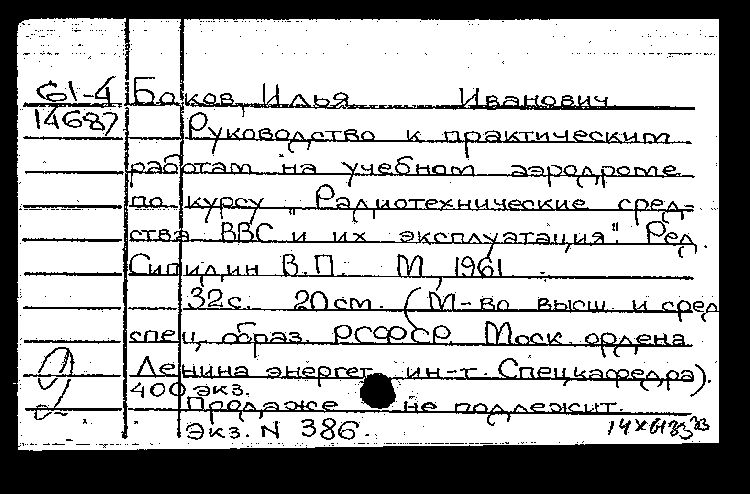 61-4 Боков, Илья Иванович
14687 Руководство к практическим
работам на учебном аэродроме
по курсу "Радиотехнические сред-
ства ВВС и их эксплуатация". Ред.
Сипидин В.П. М, 1961
32с. 20см. (М-во высш и сред
спец, образ. РСФСР. Моск ордена
2 Ленина энергет ин-т. Спецкафедра).
400 экз.
Продаже не подлежит.
Экз. N 386.